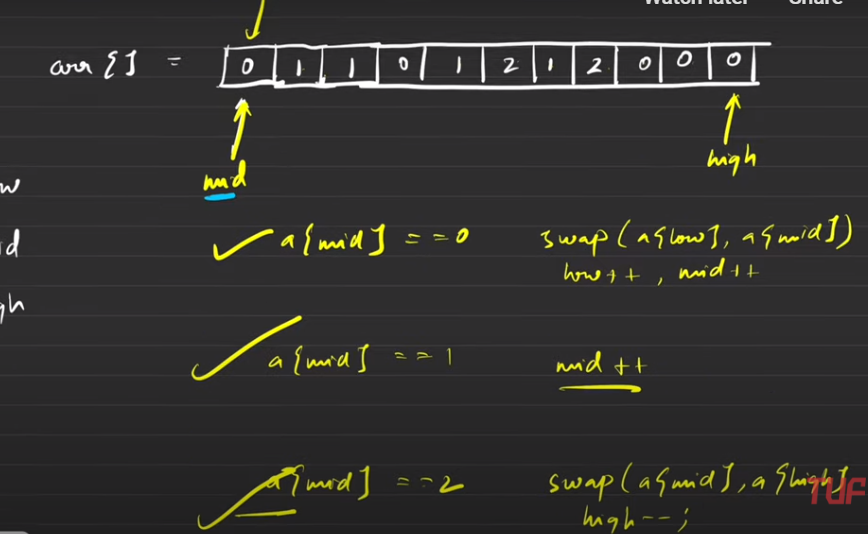 Watch later Share
arr[] = 0 1 1 0 1 2 1 2 0 0 0
mid
high
w
d
gh
a[mid] == 0 swap(a[low], a[mid])
low++, mid++
a[mid] == 1 mid++
a[mid] == 2 swap(a[mid], a[high]
high--;
TUF